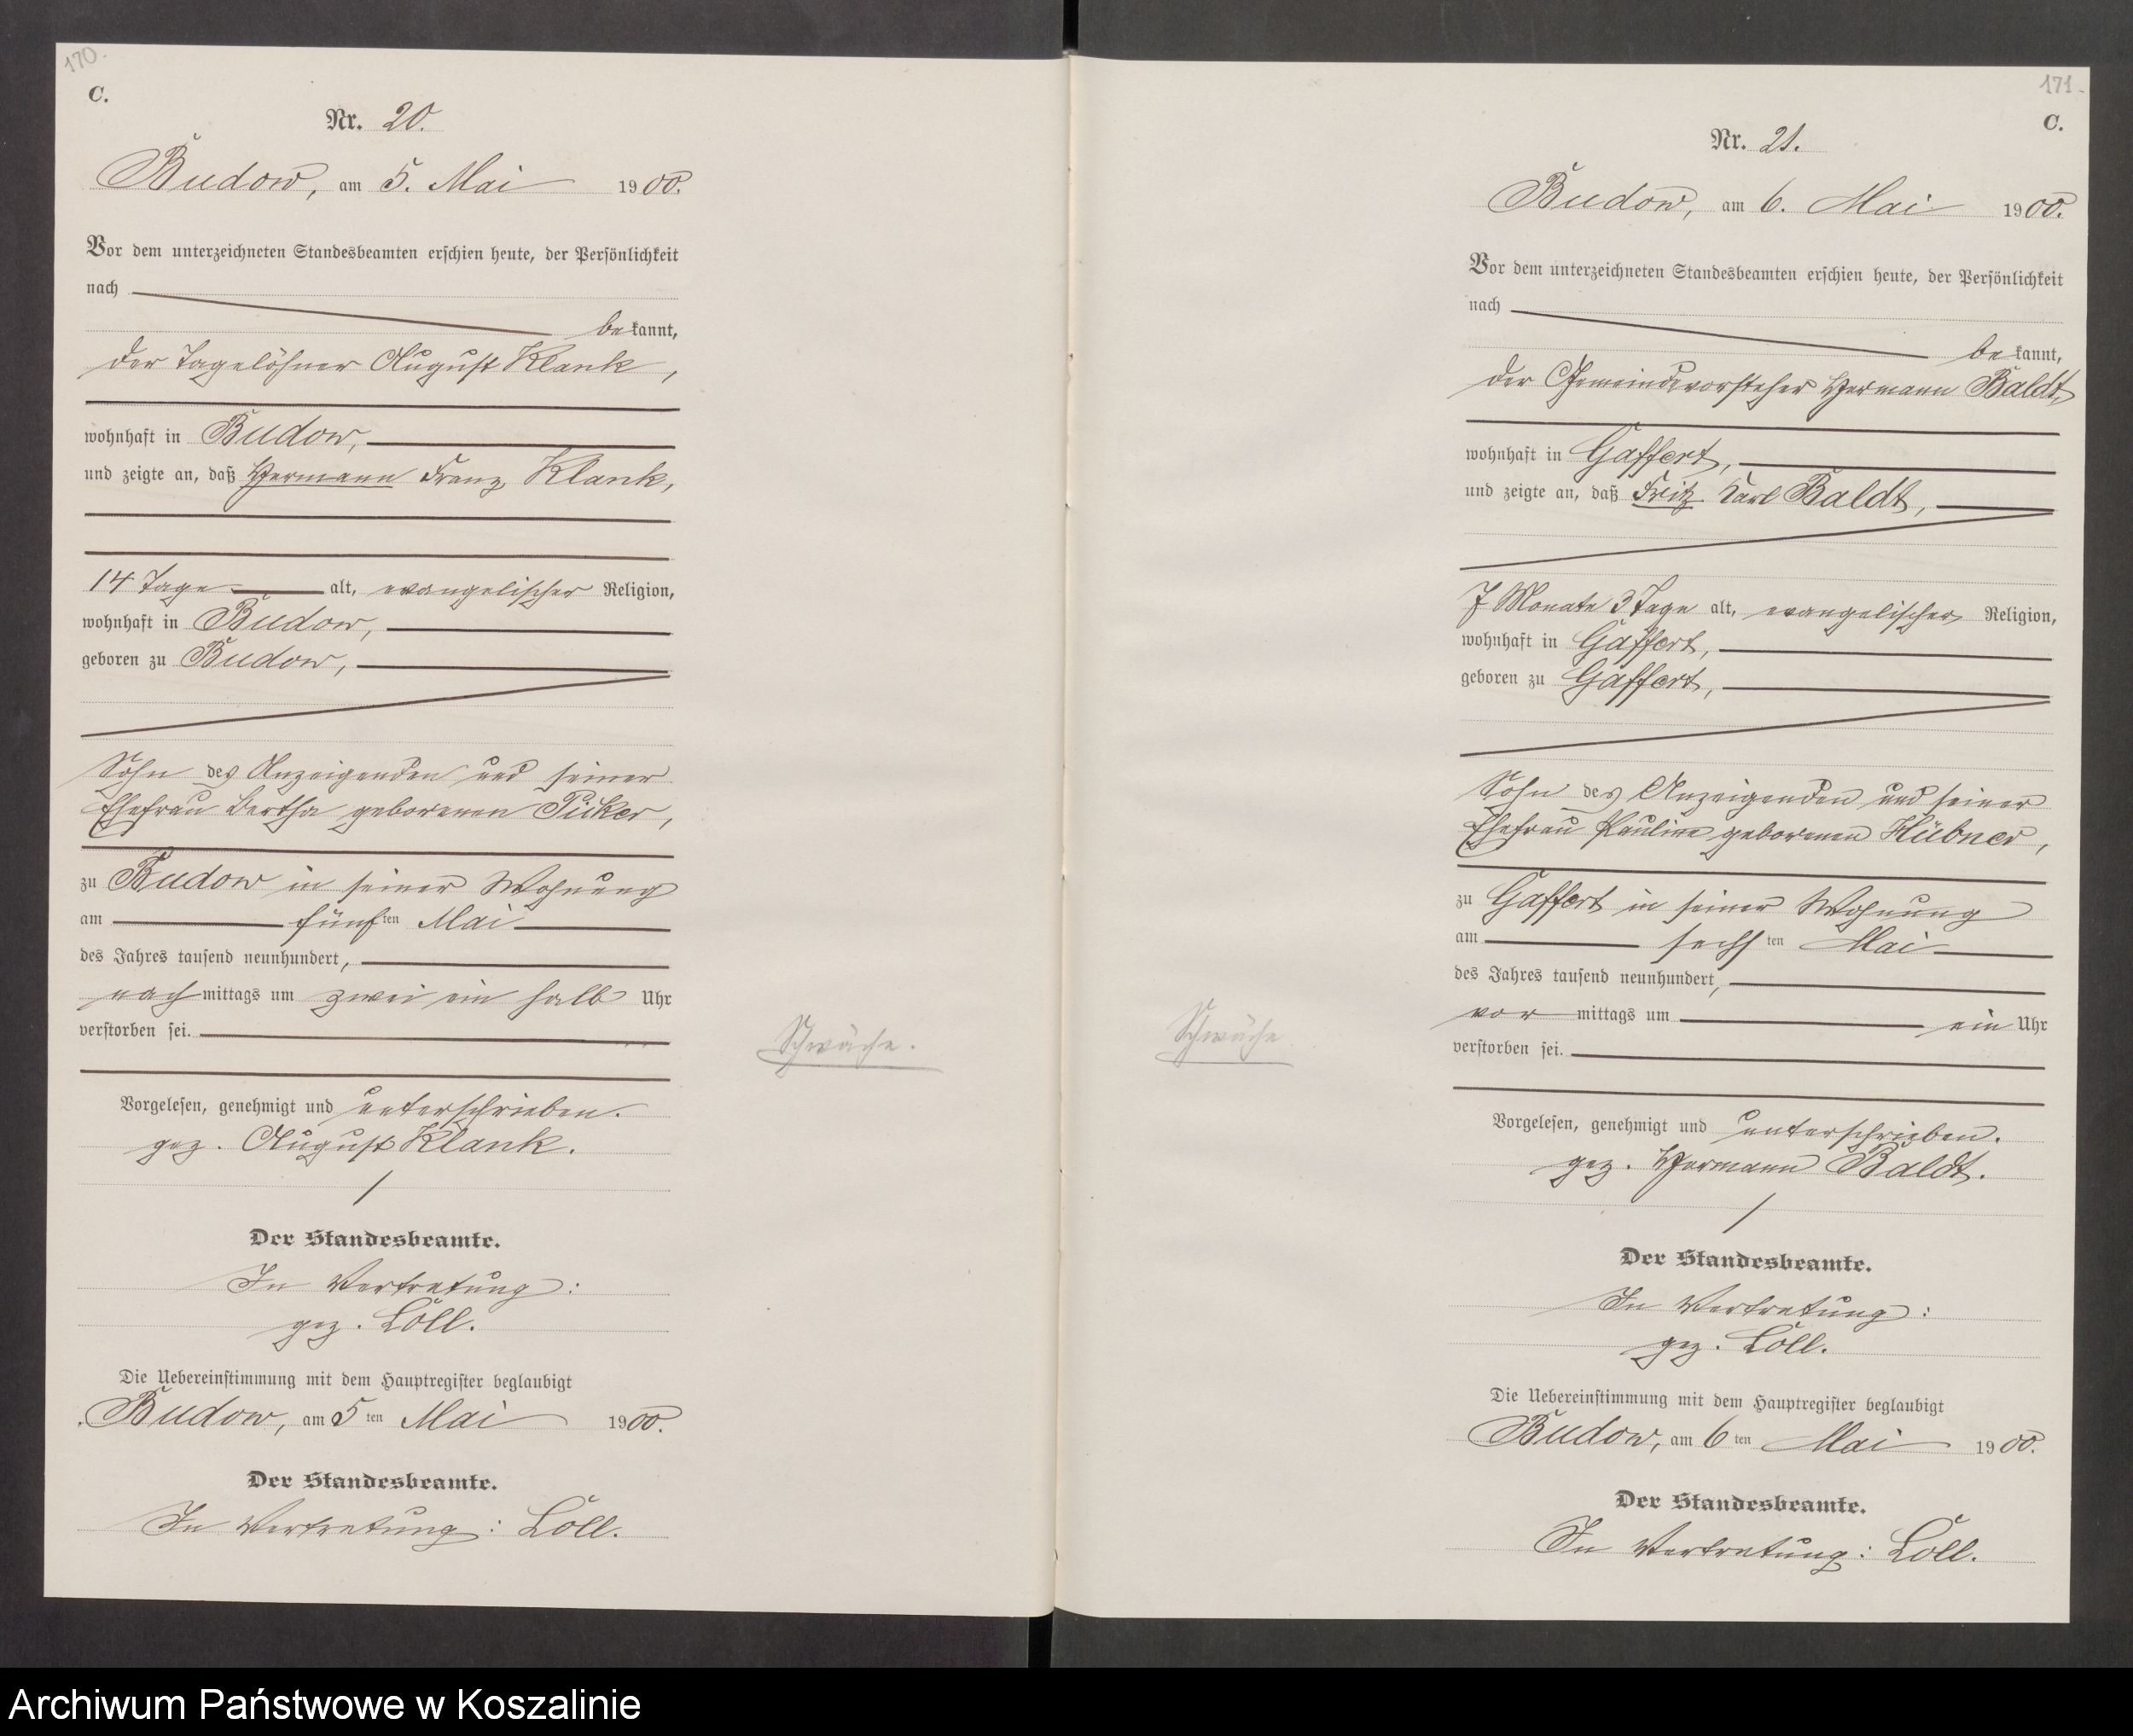 170.
C.
Nr. 20.
Budow, am 5. Mai 1900.
Vor dem unterzeichneten Standesbeamten erschien heute, der Persönlichkeit
nach
bekannt,
der Tagelöhner August Klank,
wohnhaft in Budow,
und zeigte an, daß Hermann Franz Klank,
14 Tage alt, evangelischer Religion,
wohnhaft in Budow,
geboren zu Budow,
Sohn des Anzeigenden und seiner
Ehefrau Bertha geborenen Püker,
zu Budow in seiner Wohnung
am fünften Mai
des Jahres tausend neunhundert,
nachmittags um zwei ein halb Uhr
verstorben sei.
Schwäche.
Vorgelesen, genehmigt und unterschrieben.
gez. August Klank.
Der Standesbeamte.
In Vertretung:
gez. Löll.
Die Uebereinstimmung mit dem Hauptregister beglaubigt
Budow, am 5ten Mai 1900.
Der Standesbeamte.
In Vertretung: Löll.
171.
C.
Nr. 21.
Budow, am 6. Mai 1900.
Vor dem unterzeichneten Standesbeamten erschien heute, der Persönlichkeit
nach
bekannt,
der Gemeindevorsteher Hermann Baldt,
wohnhaft in Gaffert,
und zeigte an, daß Fritz Karl Baldt,
7 Monate 3 Tage alt, evangelischer Religion,
wohnhaft in Gaffert,
geboren zu Gaffert,
Sohn des Anzeigenden und seiner
Ehefrau Pauline geborenen Hübner,
zu Gaffert in seiner Wohnung
am sechsten Mai
des Jahres tausend neunhundert,
vormittags um ein Uhr
verstorben sei.
Schwäche
Vorgelesen, genehmigt und unterschrieben.
gez. Hermann Baldt.
Der Standesbeamte.
In Vertretung:
gez. Löll.
Die Uebereinstimmung mit dem Hauptregister beglaubigt
Budow, am 6ten Mai 1900.
Der Standesbeamte.
In Vertretung: Löll.
Archiwum Państwowe w Koszalinie